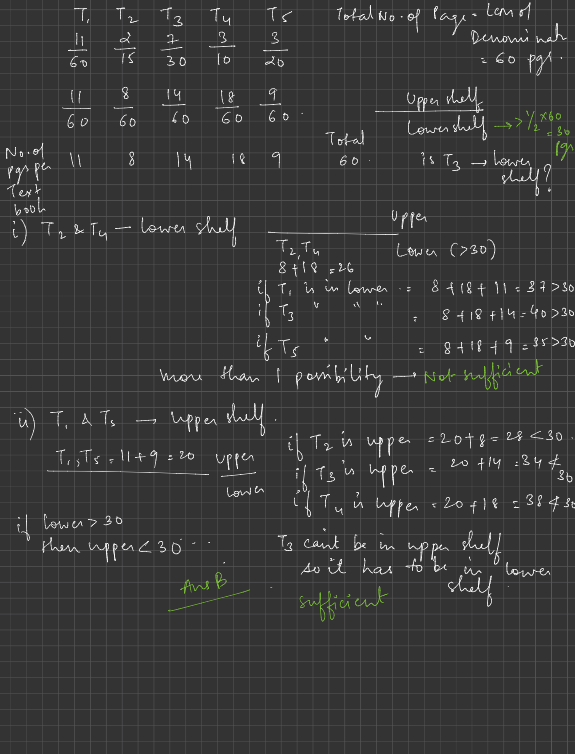 T1 T2 T3 T4 T5 Total No. of Page = Lcm of
11/60 2/15 7/30 3/10 3/20 Denominatr
= 60 pgs.
11/60 8/60 14/60 18/60 9/60.
Upper shelf
Lower shelf → > 1/2 × 60
= 30 pgs
No. of pgs per Text book 11 8 14 18 9 Total 60.
is T3 → Lower shelf?
i) T2 & T4 — Lower shelf
Upper
T2, T4 Lower (>30)
8+18 = 26
if T1 is in lower = 8+18+11 = 37 >30
if T3 " " " = 8+18+14 = 40 >30
if T5 " " = 8+18+9 = 35 >30
more than 1 possibility → Not sufficient
ii) T1 & T5 → upper shelf.
T1, T5 = 11+9 = 20 upper
Lower
if T2 is upper = 20+8 = 28 < 30.
if T3 is upper = 20+14 = 34 ≮ 30
if T4 is upper = 20+18 = 38 ≮ 30
if lower > 30
then upper < 30 ...
T3 can't be in upper shelf
so it has to be in lower
shelf.
Ans B
sufficient